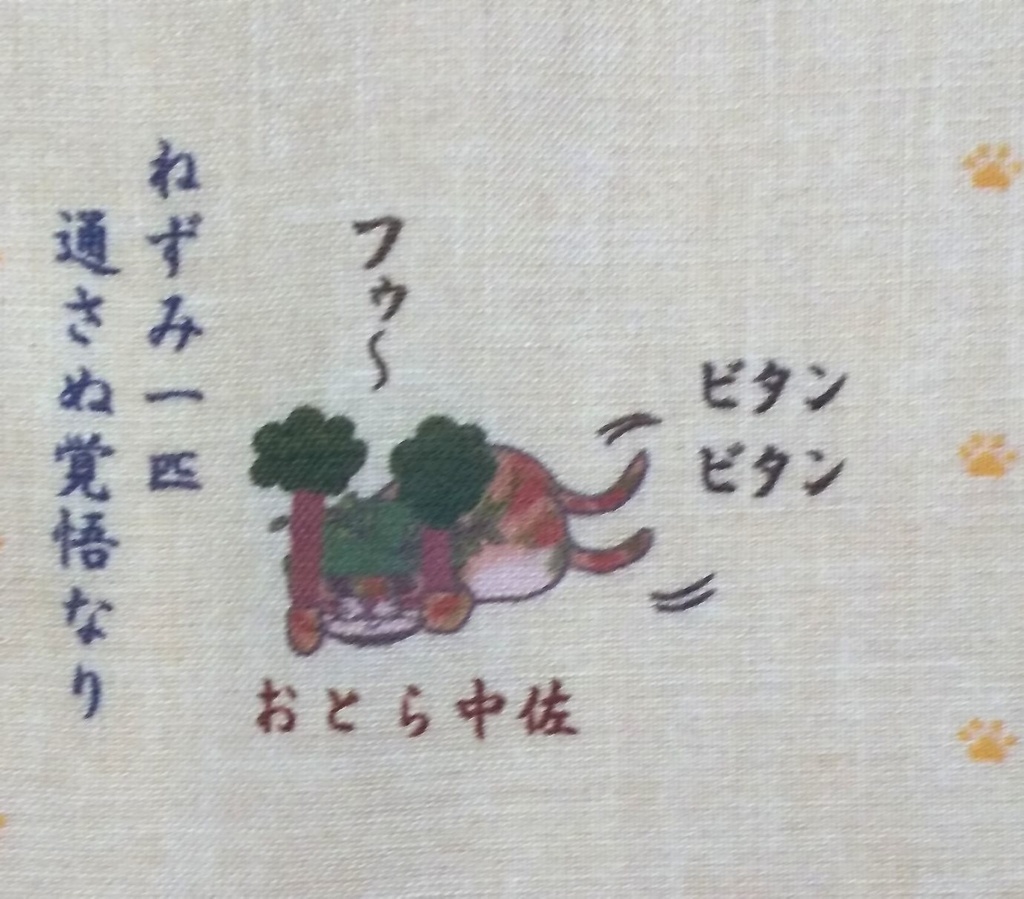 ねずみ一匹
通さぬ覚悟なり
フゥ〜
ビタン
ビタン
おとら中佐